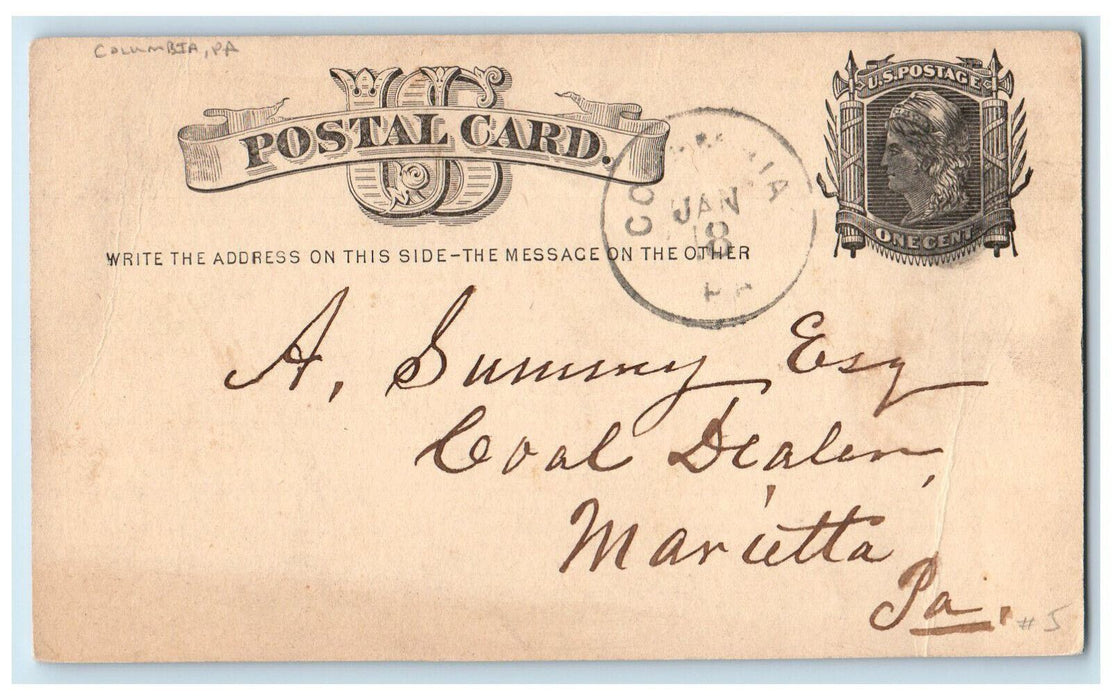 COLUMBIA, PA
US
POSTAL CARD.
U.S. POSTAGE
ONE CENT
COLUMBIA
JAN
8
PA
WRITE THE ADDRESS ON THIS SIDE–THE MESSAGE ON THE OTHER
A. Summy Esq
Coal Dealer,
Marietta
Pa.
#5